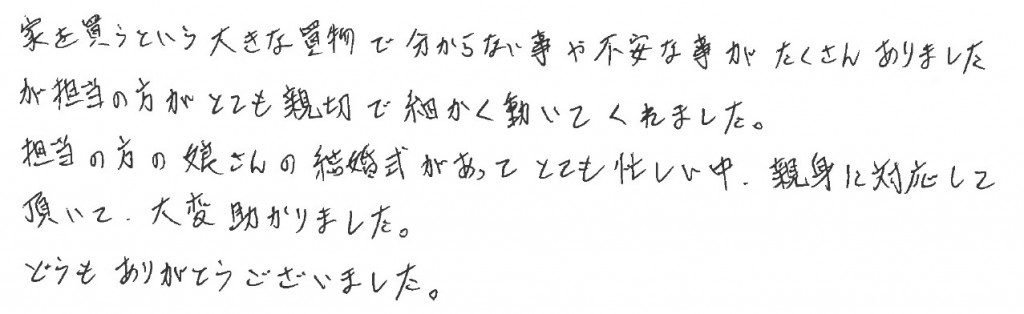 家を買うという大きな買物で分からない事や不安な事がたくさんありました
が担当の方がとても親切で細かく動いてくれました。
担当の方の娘さんの結婚式があってとても忙しい中、親身に対応して
頂いて、大変助かりました。
どうもありがとうございました。